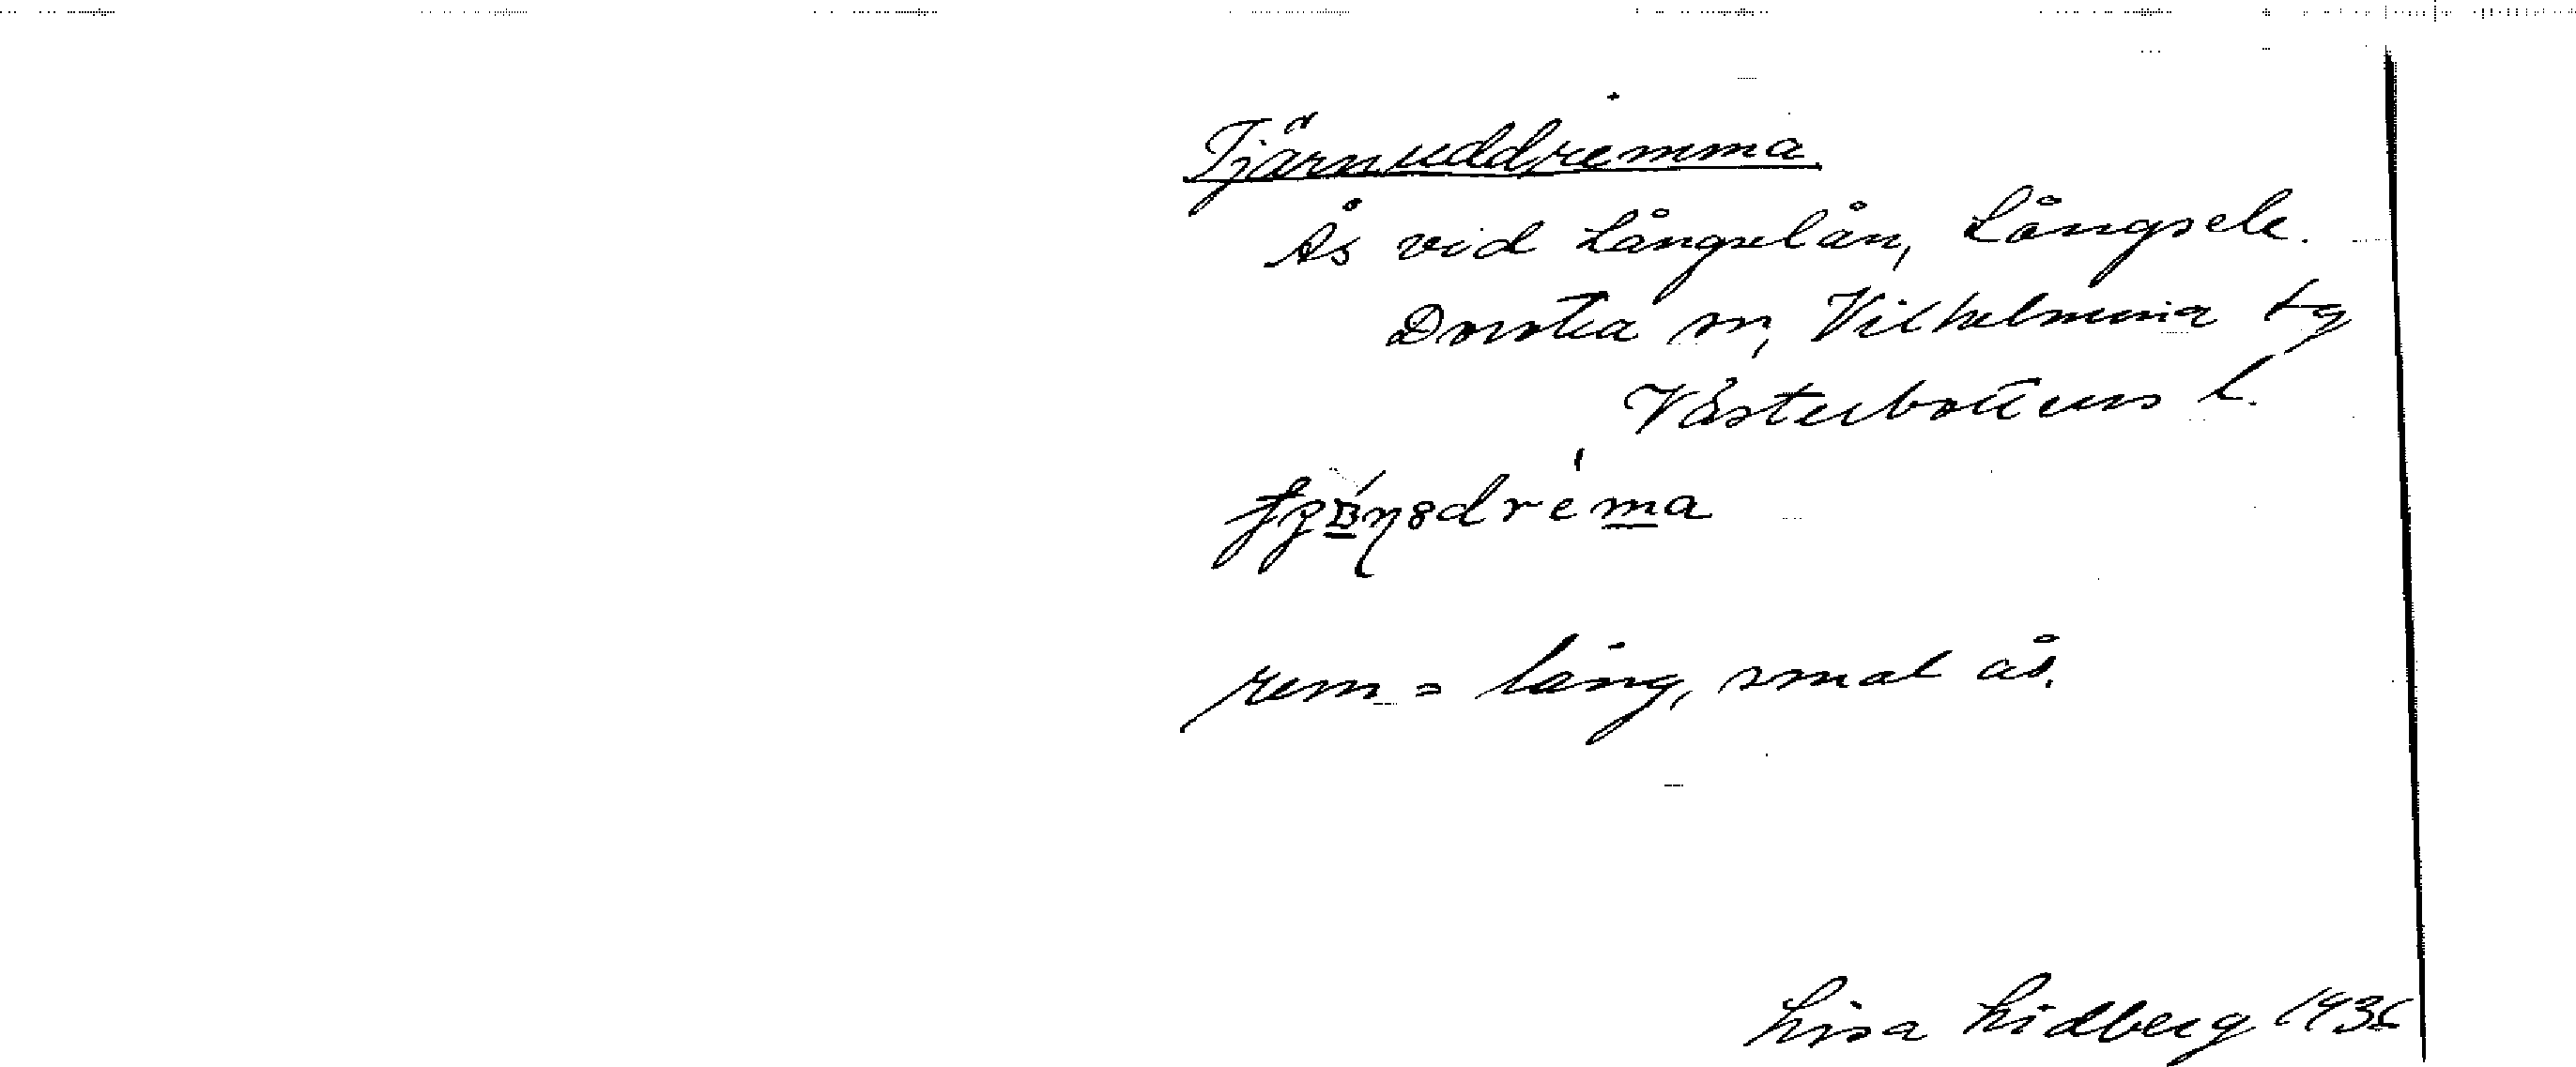 Tjärnuddremma
Ås vid Långselån, Långsele.
Dorotea sn, Vilhelmina tg
Västerbottens l.
rem = lång, smal ås.
Lisa Lidberg 1936